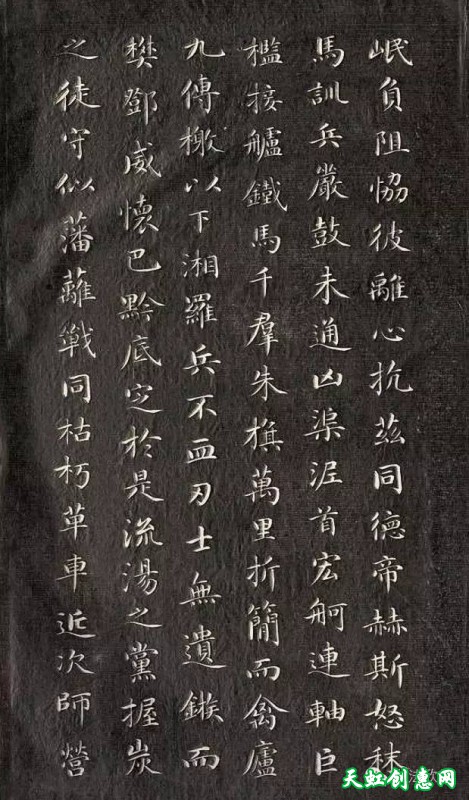 岷負阻恊彼離心抗茲同德帝赫斯怒秣
馬訓兵嚴鼓未通凶渠泥首宏舸連軸巨
檻接艫鐵馬千羣朱旗萬里折簡而禽廬
九傳檄以下湘羅兵不血刃士無遺鏃而
樊鄧威懷巴黔底定於是流湯之黨握炭
之徒守似藩蘺戰同枯朽革車近次師營
天虹创惠网